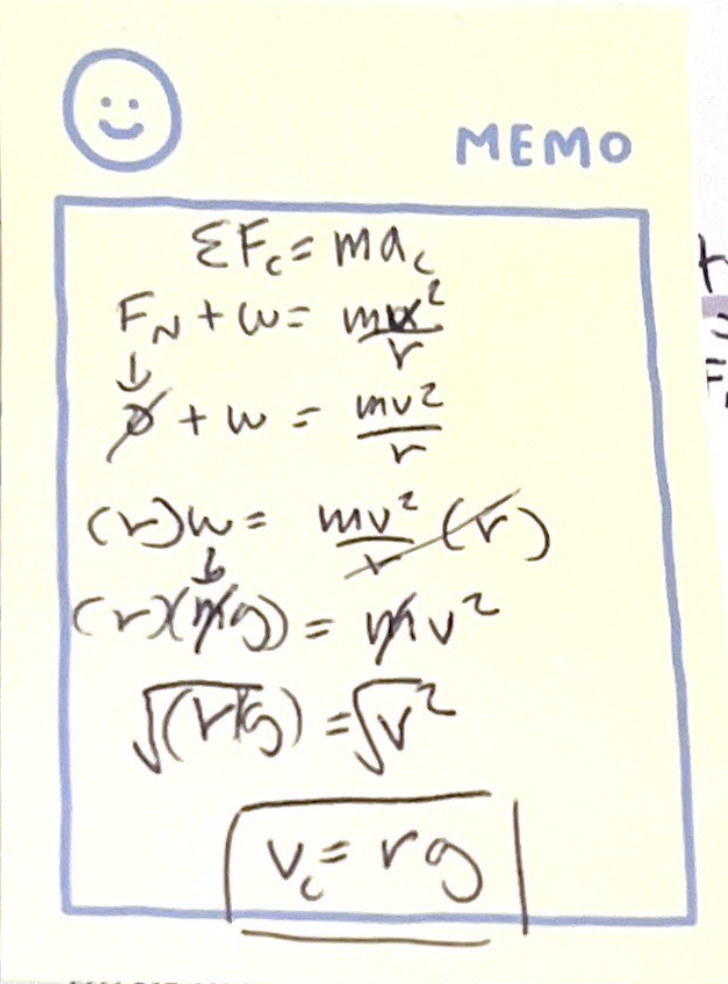 MEMO
ΣF_c = ma_c
F_N + w = mv²/r
↓
0 + w = mv²/r
(r)w = mv²/r (r)
↓
(r)(mg) = mv²
√(r)(g) = √v²
v_c = rg